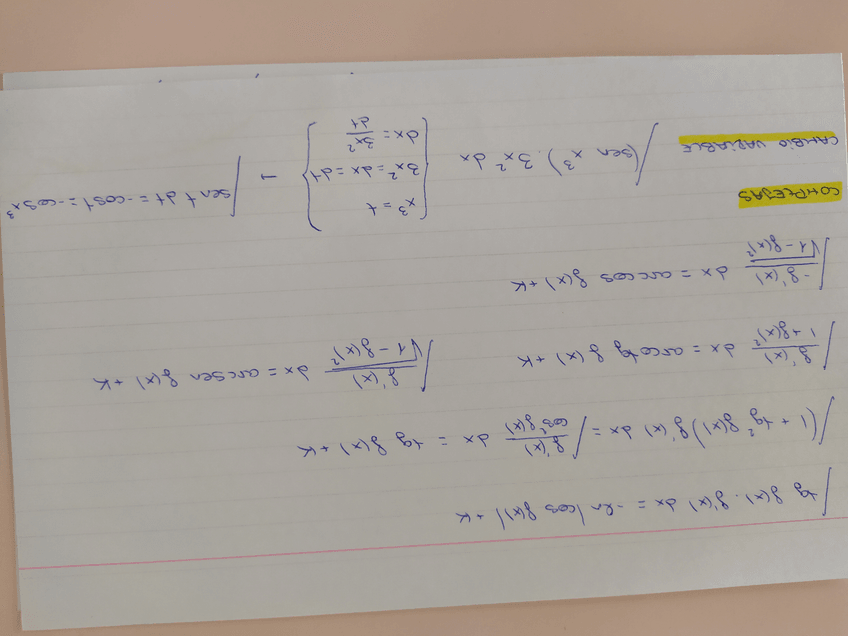 ∫ tg f(x) · f'(x) dx = -ln |cos f(x)| + K
∫ (1 + tg² f(x)) f'(x) dx = ∫ f'(x)/cos² f(x) dx = tg f(x) + K
∫ f'(x)/1 + f(x)² dx = arcotg f(x) + K ∫ f'(x)/√1 - f(x)² dx = arcsen f(x) + K
∫ -f'(x)/√1 - f(x)² dx = arccos f(x) + K
COMPLEJAS
CAMBIO VARIABLE
∫ (sen x³) · 3x² dx { x³ = t
3x² = dx = dt
dx = 3x²/dt } → ∫ sen t dt = -cos t = -cos x³